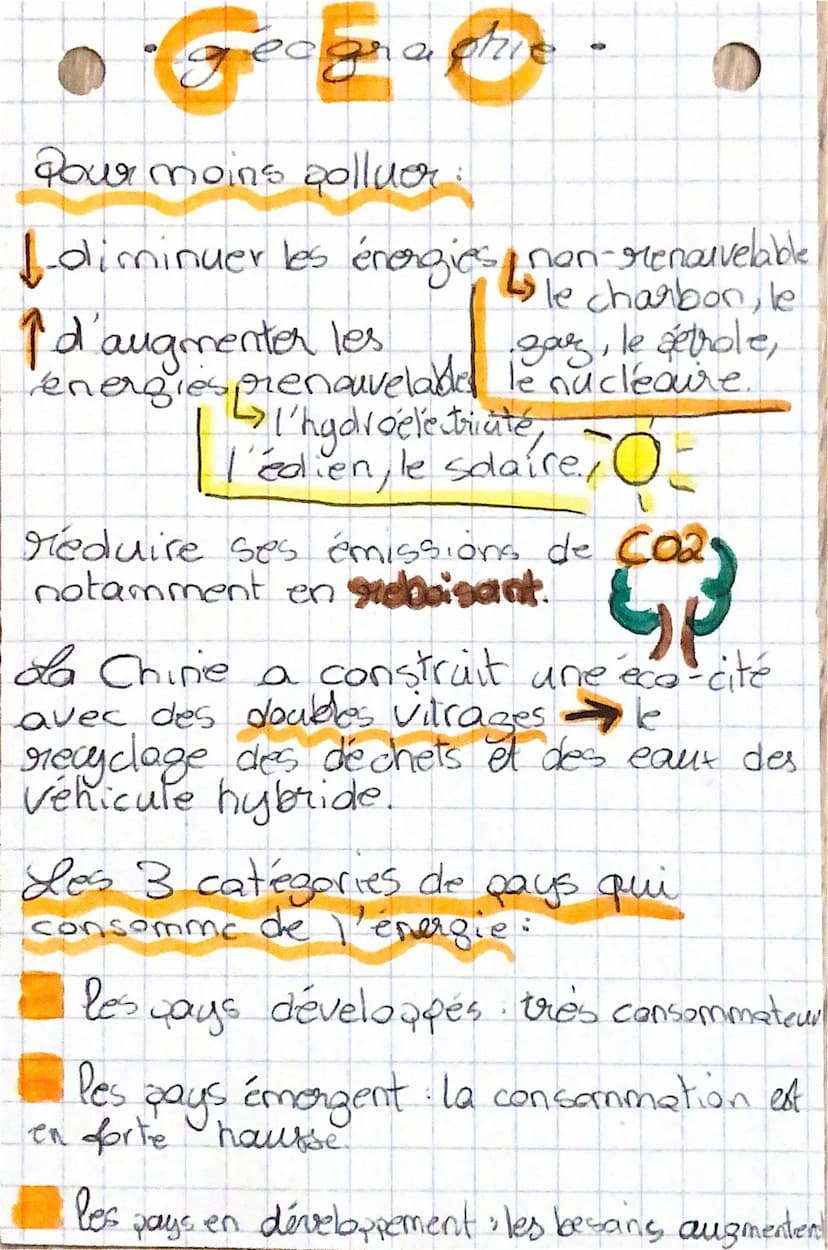 GEO
- géographie -
Pour moins polluer :
↓ diminuer les énergies non-renouvelable
↳ le charbon, le
gaz, le pétrole,
le nucléaire.
↑ d'augmenter les
énergies renouvelables
↳ l'hydroélectricité,
l'éolien, le solaire.
réduire ses émissions de CO2
notamment en reboisant.
La Chine a construit une éco-cité
avec des doubles vitrages → le
recyclage des déchets et des eaux des
véhicule hybride.
Les 3 catégories de pays qui
consomme de l'énergie :
les pays développés : très consommateur
les pays émergent : la consommation est
en forte hausse.
les pays en développement : les besoins augmentent